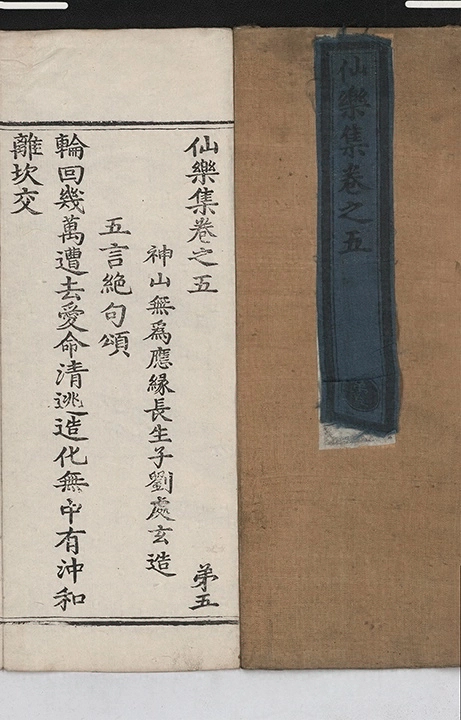 仙樂集卷之五
仙樂集卷之五 弟五
神山無爲應緣長生子劉處玄造
五言絶句頌
輪回幾萬遭去愛命清逃造化無中有沖和
離坎交